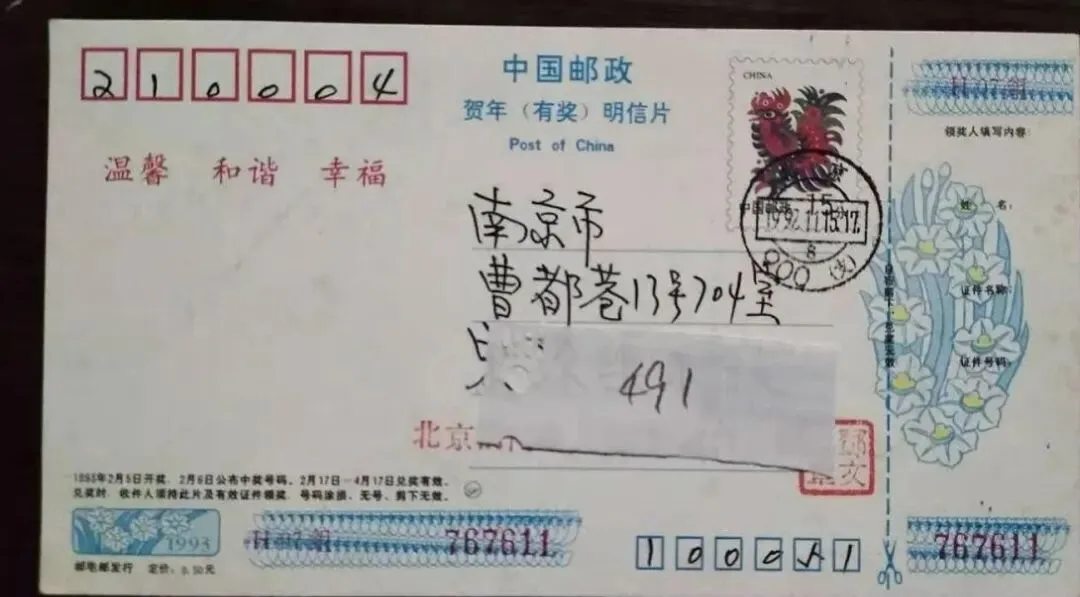 210004
中国邮政
贺年（有奖）明信片
Post of China
温馨 和谐 幸福
CHINA
中国邮政
15分
1992.11.15.17
南京市
曹都巷13号704室
491
北京
1993年2月5日开奖，2月6日公布中奖号码，2月17日－4月17日兑奖有效。
兑奖时，收件人须持此片及有效证件领奖，号码涂损、无号、剪下无效。
1993
767611
邮电部发行 定价：0.50元
领奖人填写内容：
姓 名：
证件名称：
证件号码：
767611